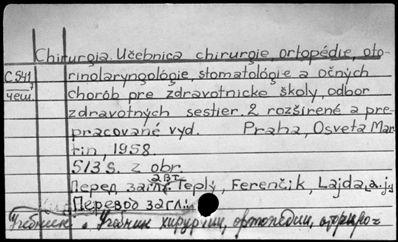 Chirurgia. Učebnica chirurgie, ortopédie, oto-
C 541 rinolaryngológie, stomatológie a očných
чеш. chorób pre zdravotnicke školy, odbor
zdravotných sestier. 2 rozšírené a pre-
pracované vyd. Praha, Osveta Mar-
tin, 1958.
513 S. z obr.
Перед загл. авт. Teplý, Ferenčik, Lajda, a.j.
Перевод загл.:
Учебник хирургии, ортопедии,